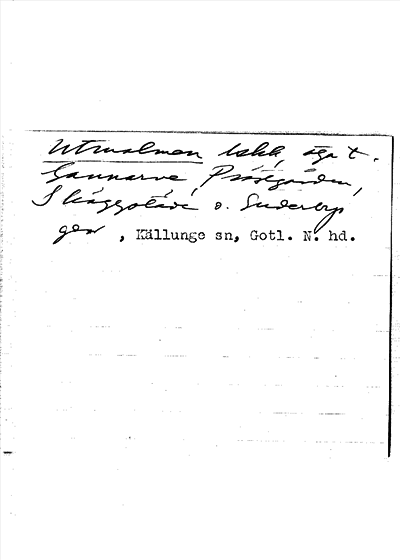 Utmalmen Uskk, äga t.
Gannarve, Prästgården,
Skäggstäde o. Suderbys
gdar, Källunge sn, Gotl. N. hd.